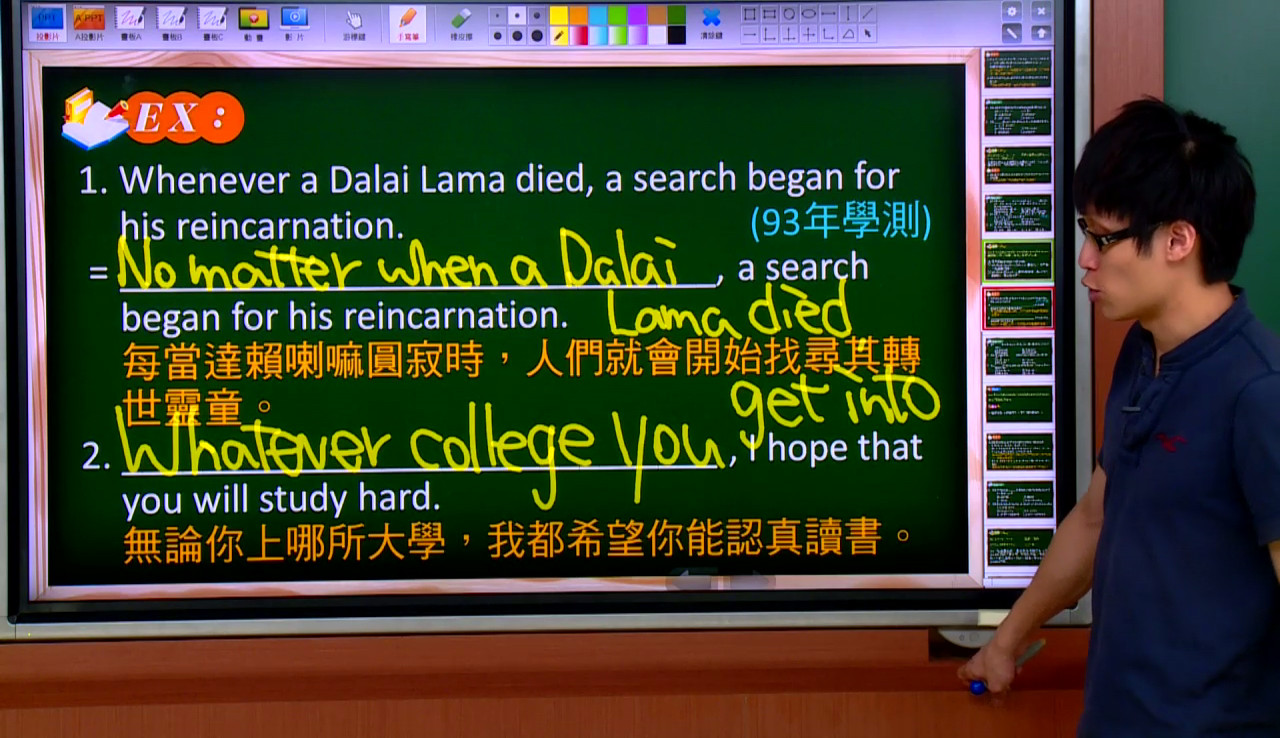 PPT
A PPT
投影片
A投影片
畫板A
畫板B
畫板C
動畫
影片
游標鍵
手寫筆
橡皮擦
清除鍵
EX:
1. Whenever a Dalai Lama died, a search began for
his reincarnation.
(93年學測)
= No matter when a Dalai, a search
began for his reincarnation. Lama died
每當達賴喇嘛圓寂時，人們就會開始找尋其轉
世靈童。
get into
2. Whatever college you, I hope that
you will study hard.
無論你上哪所大學，我都希望你能認真讀書。